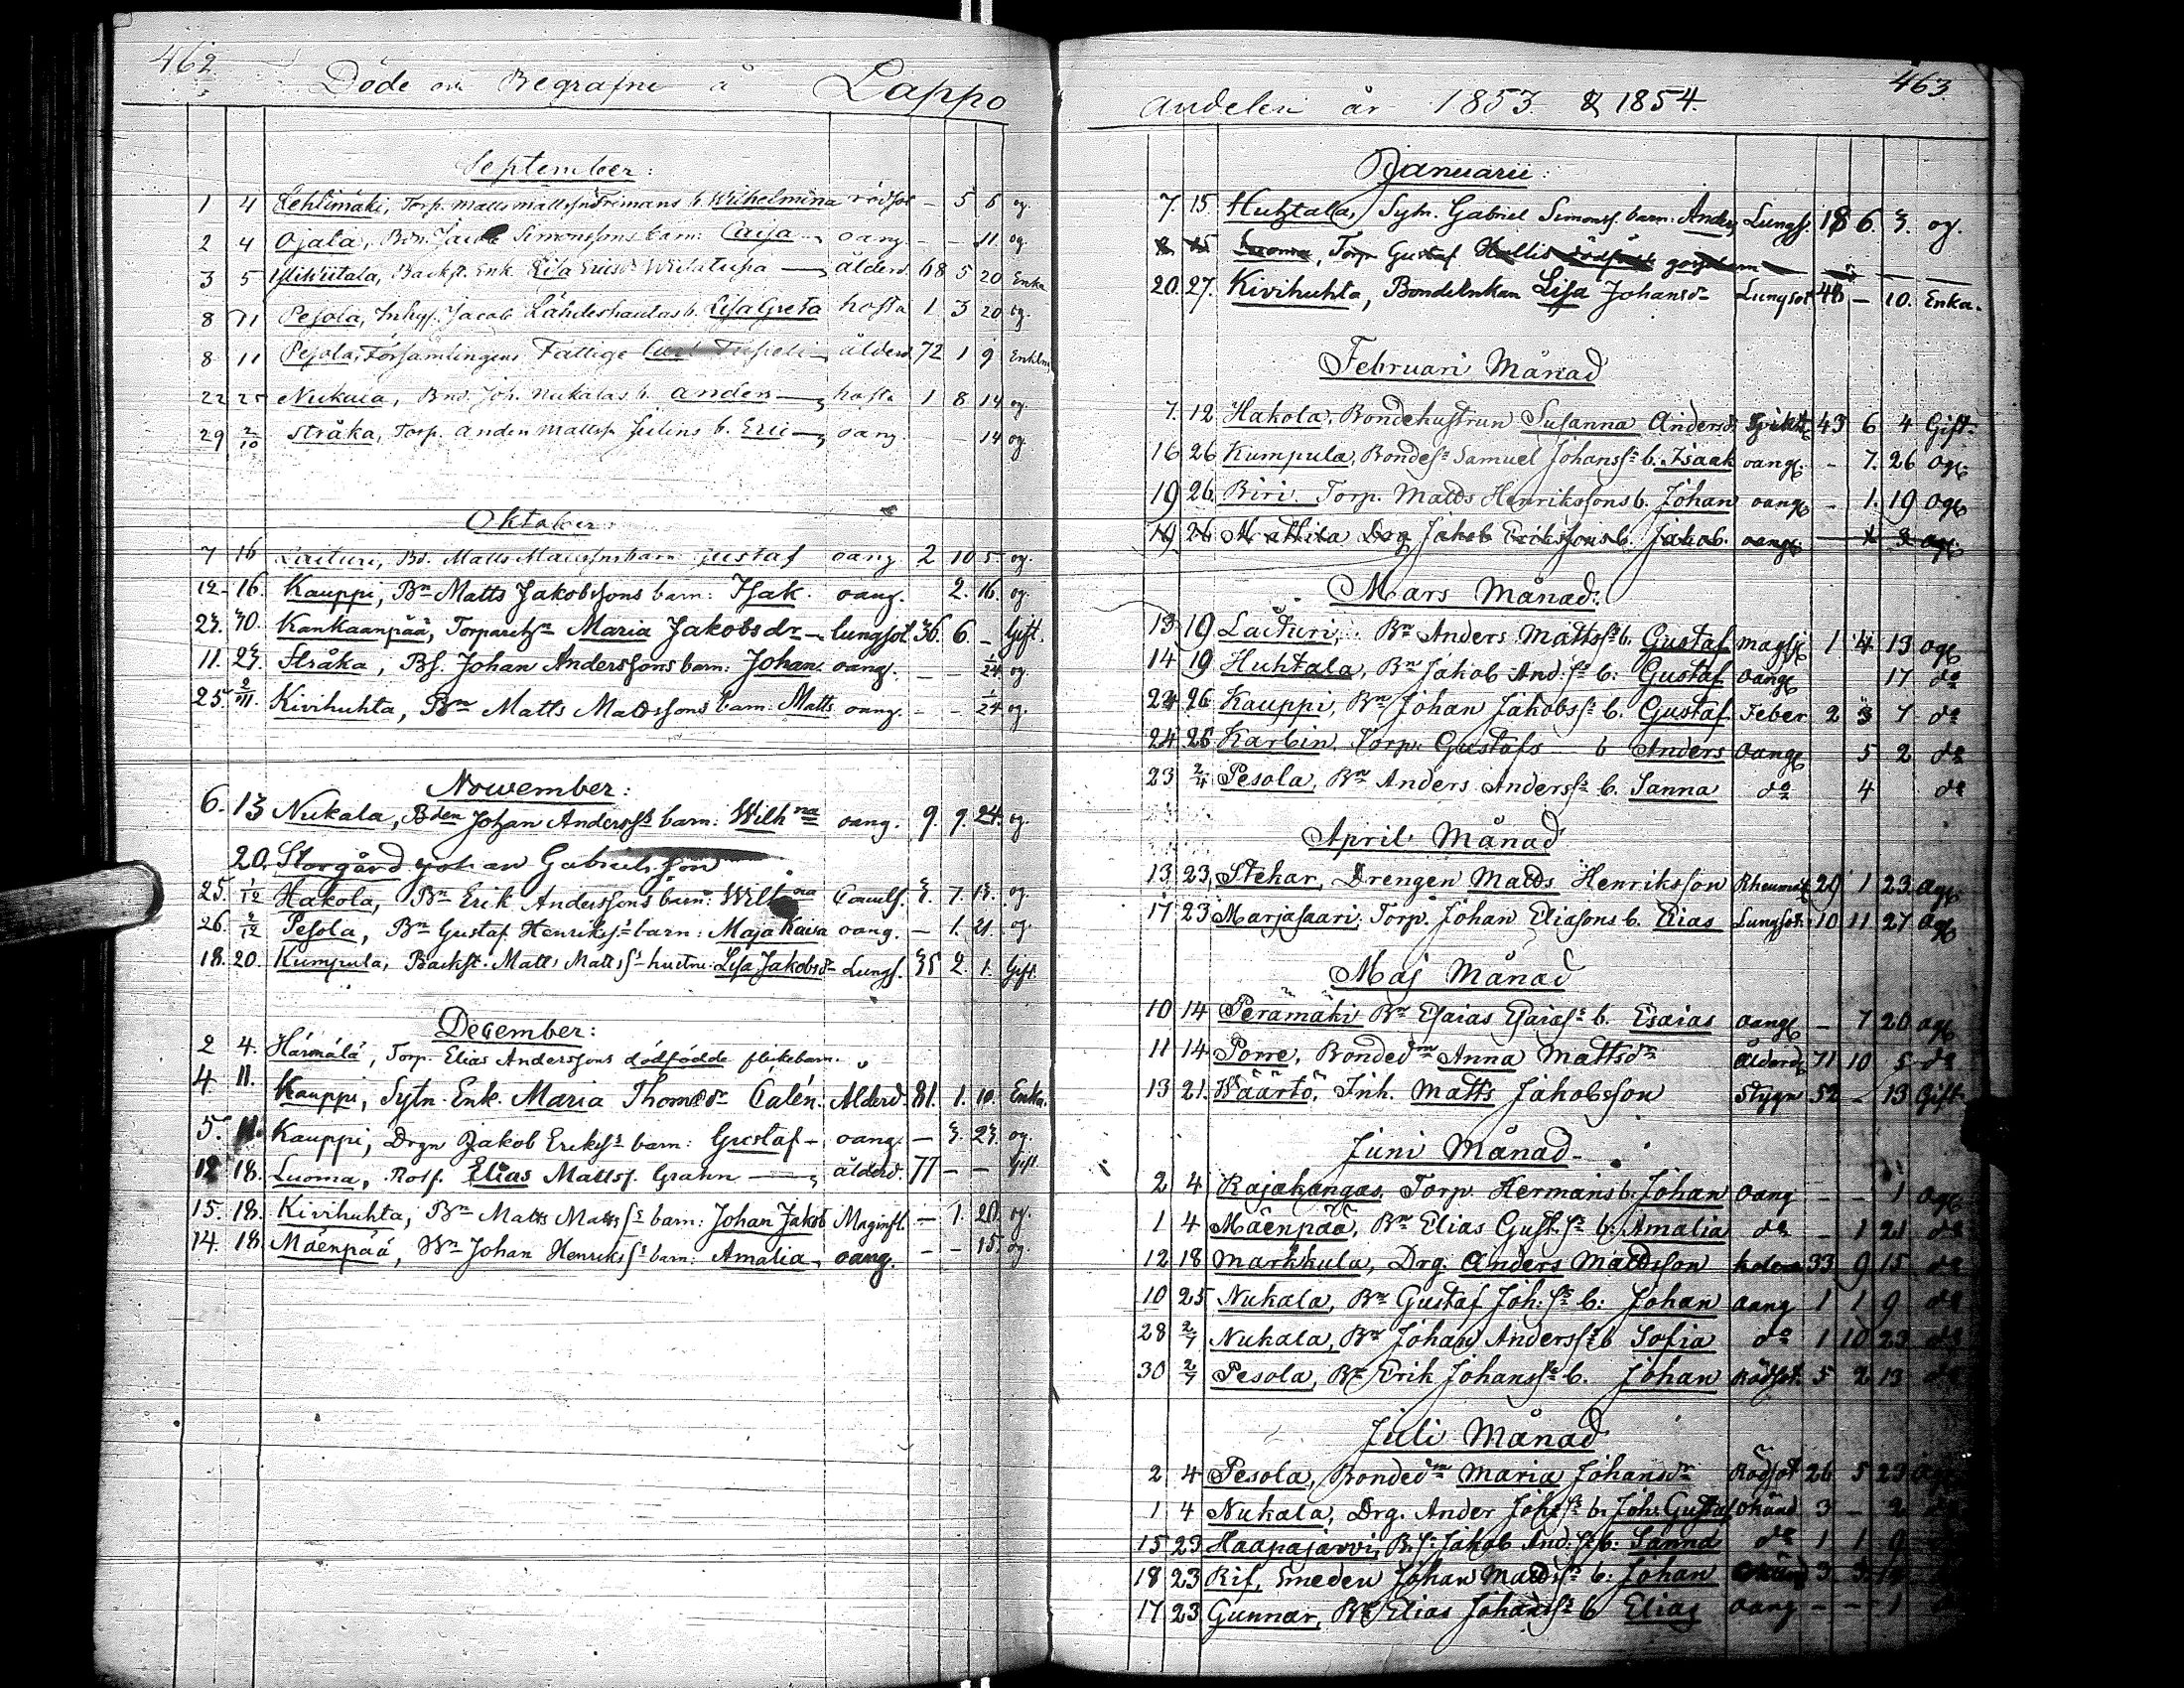 462
Döde och Begrafne å Lappo
September:
1 4 Lehtimäki, Torp. Matts Mattss Frimans b. Wilhelmina rödsot - 5 6 og.
2 4 Ojala, Bdn Jacob Simonssons barn: Caisa oang. - - 11 og
3 5 Backst. Enk. Lisa Ericsdr ålderd. 68 5 20 Enka
8 11 Pesola, Inhys. Jacob Lähdeshautas b. Lisa Greta hosta 1 3 20 og.
8 11 Pesola, Församlingens Fattige Carl ålderd. 72 1 9 Enklm
22 25 Nukala, Bnd. Joh. Nukalas b. Anders hosta 1 8 14 og.
29 2/10 Stråka, Torp. Anders Mattss. Julins b. Eric oang. - 14 og.
Oktober:
7 16 Laituri, Bd. Matts Mattssons barn Gustaf oang. 2 10 5 og.
12 16. Kauppi, Bn Matts Jakobssons barn: Isak. oang. 2. 16. og.
23. 30. Kankaanpää, Torparehn Maria Jakobsdr lungsot. 36. 6. - Gift.
11. 23. Stråka, Bs. Johan Anderssons barn: Johan oang. - - 1/24 og.
25. 2/III. Kivihuhta, Bn Matts Mattssons barn: Matts oang. - - 1/24 og.
November:
6. 13 Nukala, Bden Johan Anderss barn: Wilhna oang. 9. 9. 24. og.
20. Storgård Johan Gabrielsson
25. 1/12 Hakola, Bn Erik Anderssons barn: Wilhna Convuls. 3. 7. 13. og.
26. 2/12 Pesola, Bn Gustaf Henrikss barn: Maja Kaisa oang. - 1. 21. og.
18. 20. Kumpula, Backst. Matts Mattss hustru: Lisa Jakobsdr Lungs. 35 2. 1. Gift.
December:
2 4. Härmälä, Torp. Elias Anderssons dödfödde flickebarn.
4 11. Kauppi, Sytn. Enk. Maria Thomedr Calén. Ålderd. 81. 1. 10. Enka.
5. 11. Kauppi, Drgn Jakob Erikss barn: Gustaf oang. - 3. 23. og.
12 18. Luoma, Rotf. Elias Mattss. Grahn ålderd. 77 - - Gift.
15. 18. Kivihuhta, Bn Matts Mattss barn: Johan Jakob Maginfl. - 1. 20. og.
14. 18. Mäenpää, Bn Johan Henrikss barn: Amalia oang. - - 15. og.
463.
Andelen år 1853. & 1854.
Januarii:
7. 15. Huhtala, Sytn. Gabriel Simonss. barn: Anders Lungs. 18 6. 3. og.
8 15 Luoma, Torp Gustaf Hallis dödfödt gossebarn
20. 27. Kivihuhta, Bondeenkan Lisa Johansdr Lungsot 48 - 10. Enka.
Februari Månad
7. 12 Hakola, Bondehustrun Susanna Andersd. 43 6 4 Gift.
16 26 Kumpula, Bondes Samuel Johanss b. Isaak oang. - 7. 26 og.
19 26. Biri Torp. Matts Henrikssons b. Johan oang. - 1. 19 og
19 26 Mattila Drg Jakob Erikssons b. Jakob. oang. 3 og.
Mars Månad.
13 19 Laituri, Bn Anders Mattss b. Gustaf magsj. 1 4 13 og
14 19 Huhtala, Bn Jakob And:s b: Gustaf oang. 17 do
24 26 Kauppi, Bn Johan Jakobss b. Gustaf Feber 2 3 7 do
24 26 Karbin, Torp. Gustafs b Anders oang. 5 2 do
23 2/4 Pesola, Bn Anders Anderss b. Sanna do 4 do
April Månad
13. 23, Stehar, Drengen Matts Henriksson Rheumat 29 1 23. og.
17 23 Marjasaari, Torp. Johan Eliasons b. Elias Lungsot. 10 11 27 og
Maj Månad
10 14 Perämäki Bn Esaias Esaiass b. Esaias oang. - 7 20 og
11 14 Porre, Bondedr Anna Mattsdr Ålderd. 71 10 5 do
13 21. Wäärtö, Inh. Matts Jakobsson Stygn 52 - 13 Gift.
Juni Månad
2 4 Rajakangas, Torp. Hermans b. Johan oang - - 1 og.
1 4 Mäenpää, Bn Elias Gust.s b: Amalia do - 1 21 do
12 18 Markkula, Drg. Anders Mattsson 33 9 15 do
10 25 Nukala, Bn Gustaf Joh:s b: Johan oang 1 1 9 do
28 2/7 Nukala, Bn Johan Anderss b Sofia do 1 10 23 do
30 2/7 Pesola, Bn Erik Johanss b. Johan Rödsot. 5 2 13 do
Juli Månad
2 4 Pesola, Bondedr Maria Johansdr Rödsot 26 5 29 og.
1 4 Nukala, Drg. Ander Johss b. Joh. Gustaf okänd 3 - 2 do
15 23 Haapajärvi, B.s: Jakob And:s b: Sanna do 1 1
18 23 Rif, Smeden Johan Mattss b: Johan 3 3
17 23 Gunnar, Bn Elias Johanss b Elias oang - - 1